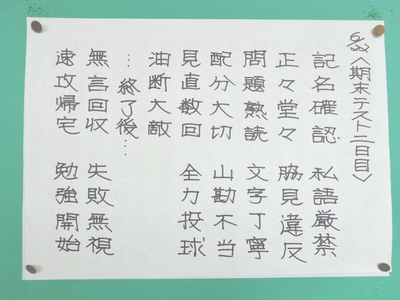 〈期末テスト二日目〉
記名確認 私語厳禁
正々堂々 脇見違反
問題熟読 文字丁寧
配分大切 山勘不当
見直数回 全力投球
油断大敵
…終了後…
無言回収 失敗無視
速攻帰宅 勉強開始